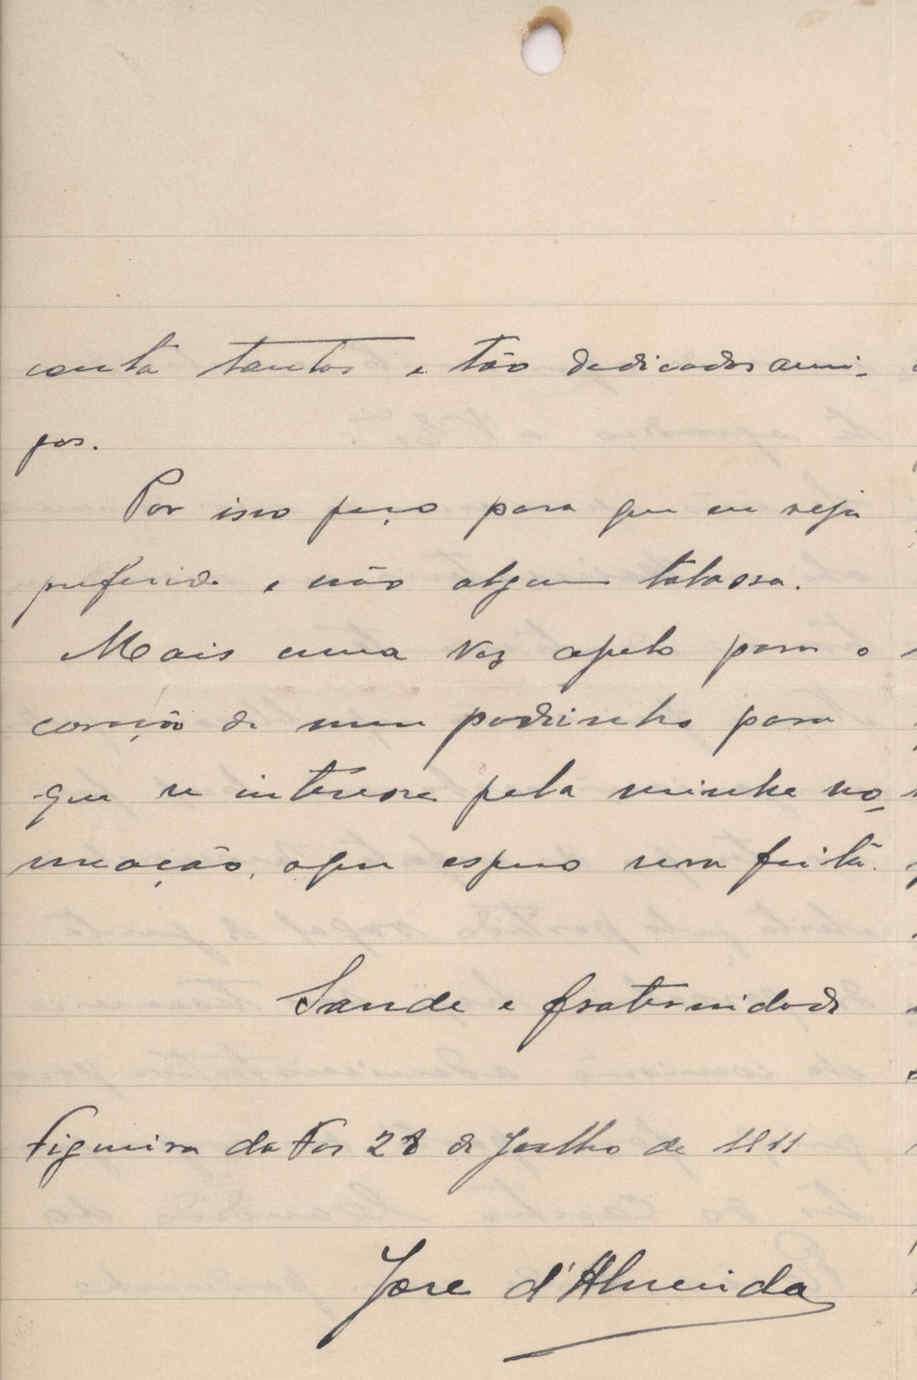 conta tantos e tão dedicados ami-
gos.
Por isso peço para que eu seja
preferido e não algum talassa.
Mais uma vez apelo para o
coração de meu padrinho para
que se interesse pela minha no-
meação, o que espero sera feita.
Saude e fraternidade
Figueira da Foz 28 de Julho de 1911
Jose d'Almeida